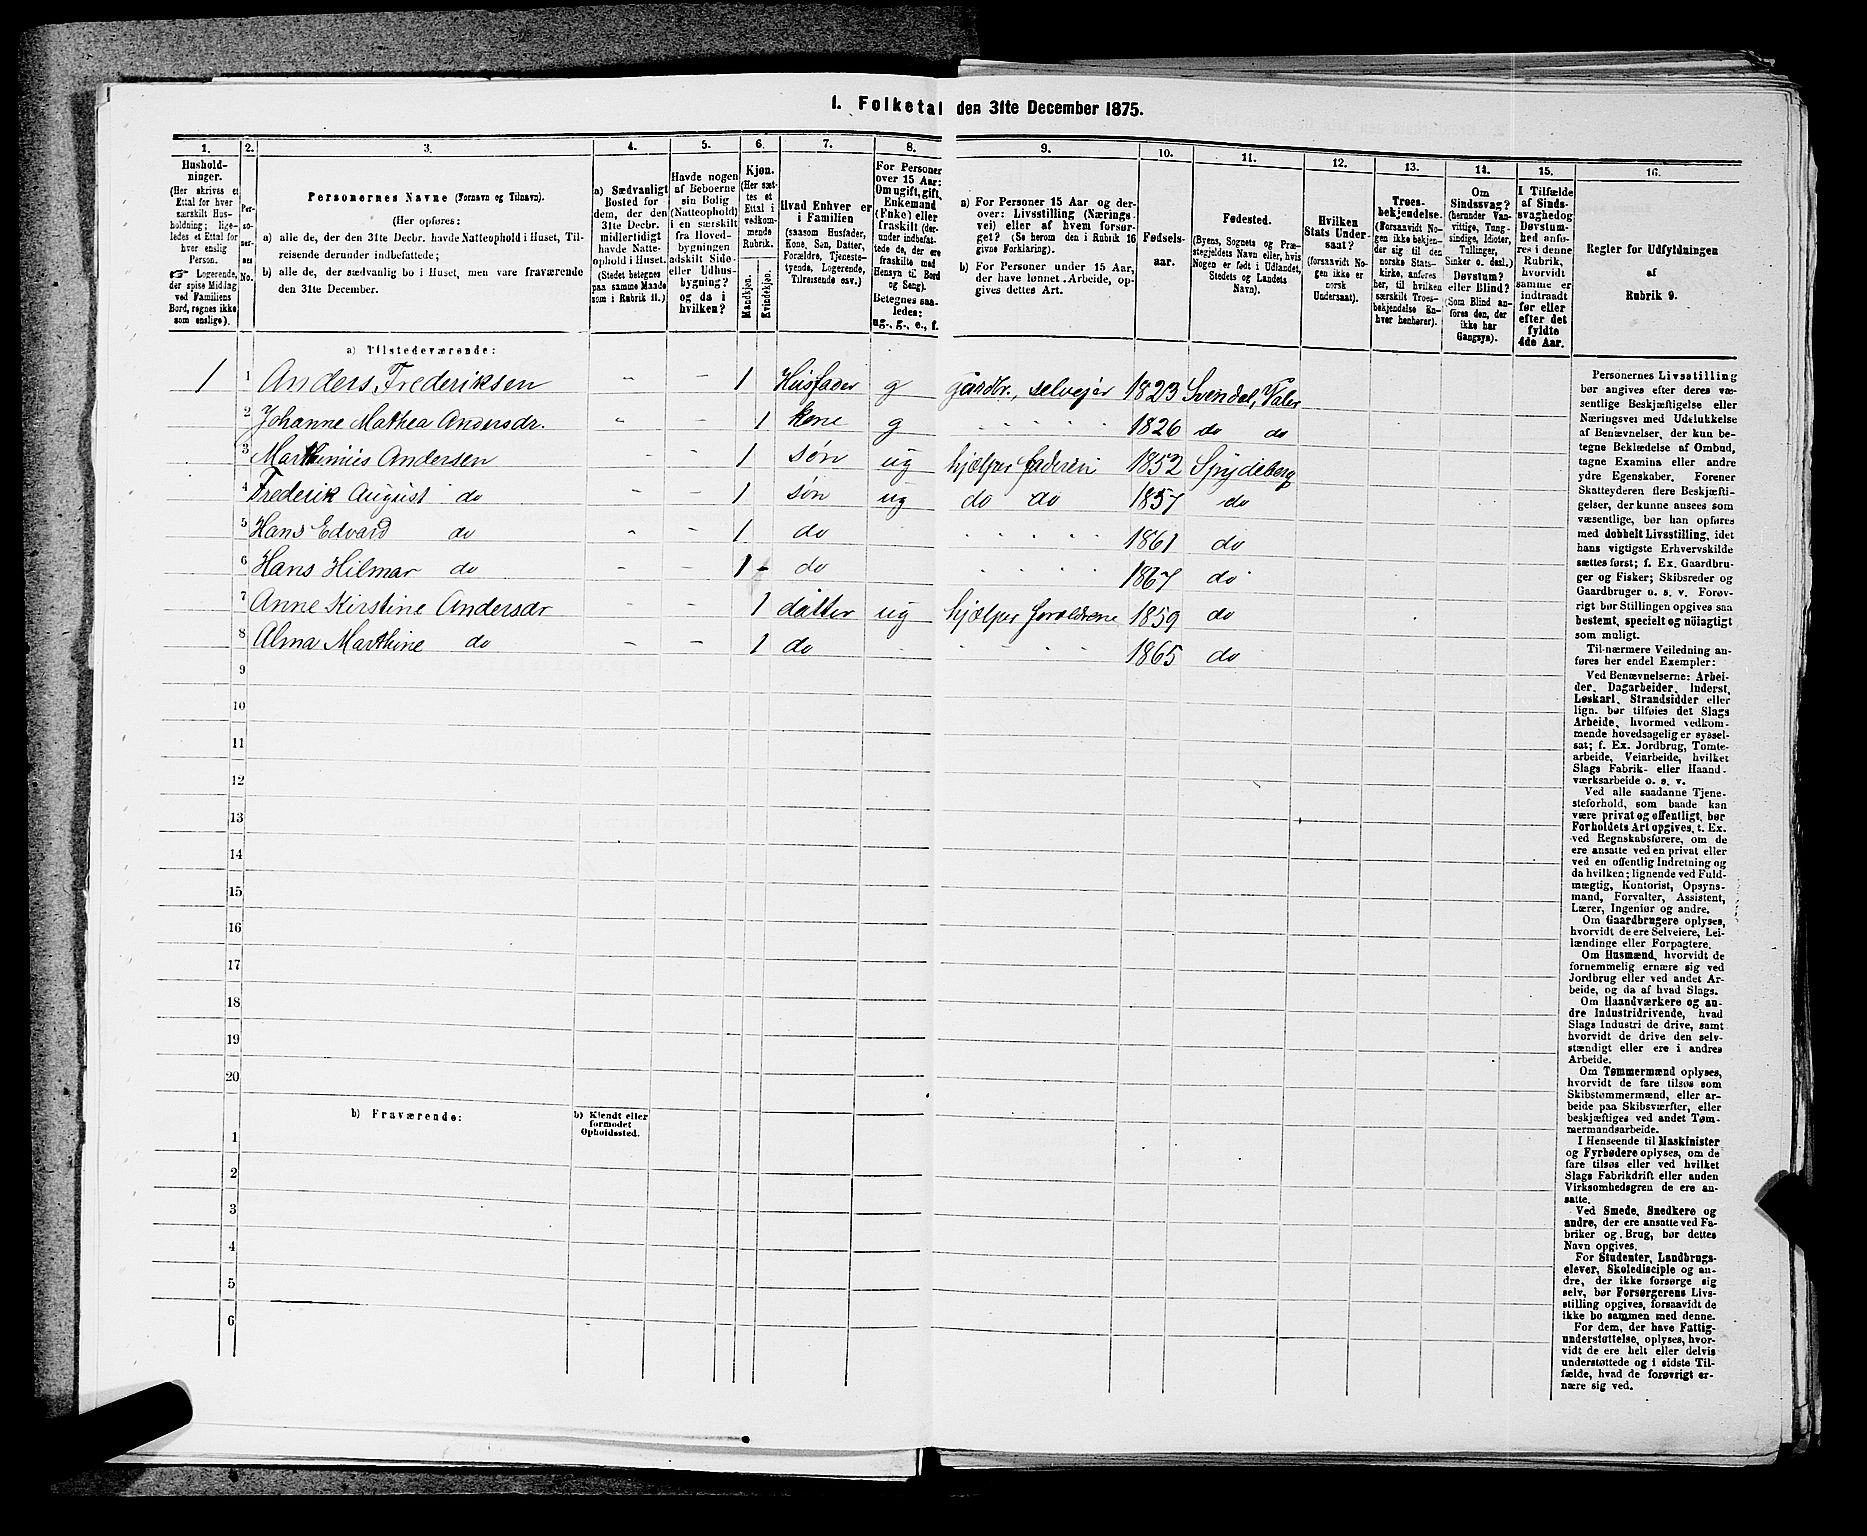 I. Folketal den 31te December 1875.
1. 2. 3. 4. 5. 6. 7. 8. 9. 10. 11. 12. 13. 14. 15. 16.
Hushold-
ninger.
(Her skrives et
Ettal for hver
særskilt Hus-
holdning; lige-
ledes et Ettal for
hver enslig
Person.
☞ Logerende,
der spise Middag
ved Familiens
Bord, regnes ikke
som enslige).
Per-
so-
ner-
nes
No.
Personernes Navne (Fornavn og Tilnavn).
(Her opføres:
a) alle de, der den 31te Decbr. havde Natteophold i Huset, Til-
reisende derunder indbefattede;
b) alle de, der sædvanlig bo i Huset, men vare fraværende
den 31te December.
a) Sædvanligt
Bosted for
dem, der den
31te Decbr.
midlertidigt
havde Natte-
ophold i Huset.
(Stedet betegnes
paa samme Maade
som i Rubrik 11.)
Havde nogen
af Beboerne
sin Bolig
(Natteophold)
i en særskilt
fra Hoved-
bygningen
adskilt Side-
eller Udhus-
bygning?
og da i
hvilken?
Kjøn.
(Her sæt-
tes et
Ettal i
vedkom-
mende
Rubrik.
Mandkjøn.
Kvindekjøn.
Hvad Enhver er
i Familien
(saasom Husfader,
Kone, Søn, Datter,
Forældre, Tjeneste-
tyende, Logerende,
Tilreisende osv.)
For Personer
over 15 Aar:
Om ugift, gift,
Enkemand
(Enke) eller
fraskilt (der-
under indbefat-
tede de, der ere
fraskilte med
Hensyn til Bord
og Seng).
Betegnes saa-
ledes:
ug., g., e., f.
a) For Personer 15 Aar og der-
over: Livsstilling (Nærings-
vei) eller af hvem forsør-
get? (Se herom den i Rubrik 16
givne Forklaring).
b) For Personer under 15 Aar,
der have lønnet Arbeide, op-
gives dettes Art.
Fødsels-
aar.
Fødested.
(Byens, Sognets og Præ-
stegjeldets Navn eller, hvis
Nogen er født i Udlandet,
Stedets og Landets
Navn).
Hvilken
Stats Under-
saat?
(forsaavidt No-
gen ikke er
norsk
Undersaat).
Troes-
bekjendelse.
(Forsaavidt No-
gen ikke bekjen-
der sig til den
norske Stats-
kirke, anføres
her, til hvilken
særskilt Troes-
bekjendelse En-
hver henhører).
Om
Sindssvag?
(herunder Van-
vittige, Tung-
sindige, Idioter,
Tullinger,
Sinker o. desl.)
Døvstum?
eller Blind?
(Som Blind an-
føres den, der
ikke har
Gangsyn).
I Tilfælde
af Sinds-
svaghed og
Døvstum-
hed anfø-
res i denne
Rubrik,
hvorvidt
samme er
indtraadt
før eller
efter det
fyldte
4de Aar.
Regler for Udfyldningen
af
Rubrik 9.
a) Tilstedeværende:
1 1 Anders Frederiksen " - 1 Husfader g gårdbr., selvejer 1823 Svendal, Våler
2 Johanne Mathea Andersdr. " 1 kone g 1826 do do
3 Marthinius Andersen - - 1 søn ug hjælper faderen 1852 Spydeberg
4 Frederik August do - - 1 søn ug do do 1857 do
5 Hans Edvard do - - 1 do 1861 do
6 Hans Hilmar do - - 1 - do 1867 do
7 Anne Kirstine Andersdr - - 1 datter ug hjælper forældrene 1859 do
8 Alma Marthine do - - 1 do 1865 do
9
10
11
12
13
14
15
16
17
18
19
20
b) Fraværende:
b) Kjendt eller
formodet
Opholdssted.
1
2
3
4
5
6
Personernes Livsstilling
bør angives efter deres væ-
sentlige Beskjæftigelse eller
Næringsvei med Udelukkelse
af Benævnelser, der kun be-
tegne Beklædelse af Ombud,
tagne Examina eller andre
ydre Egenskaber. Forener
Skatteyderen flere Beskjæfti-
gelser, der kunne ansees som
væsentlige, bør han opføres
med dobbelt Livsstilling, idet
hans vigtigste Erhvervskilde
sættes først; f. Ex. Gaardbru-
ger og Fisker; Skibsreder og
Gaardbruger o. s. v. Forøv-
rigt bør Stillingen opgives saa
bestemt, specielt og nöiagtigt
som muligt.
Til nærmere Veiledning an-
føres her endel Exempler:
Ved Benævnelserne: Arbei-
der, Dagarbeider, Inderst,
Løskarl, Strandsidder eller
lign. bør tilføies det Slags
Arbeide, hvormed vedkom-
mende hovedsagelig er syssel-
sat; f. Ex. Jordbrug, Tomte-
arbeide, Veiarbeide, hvilket
Slags Fabrik- eller Haand-
værksarbeide o. s. v.
Ved alle saadanne Tjene-
steforhold, som baade kan
være privat og offentligt, bør
Forholdets Art opgives, t. Ex.
ved Regnskabsførere, om de
ere ansatte ved en privat eller
ved en offentlig Indretning og
da hvilken; lignende ved Fuld-
mægtig, Kontorist, Opsyns-
mand, Forvalter, Assistent,
Lærer, Ingeniør og andre.
Om Gaardbrugere oplyses,
hvorvidt de ere Selveiere, Lei-
lændinge eller Forpagtere.
Om Husmænd, hvorvidt de
fornemmelig ernære sig ved
Jordbrug eller ved andet Ar-
beide, og da af hvad Slags.
Om Haandværkere og an-
dre Industridrivende, hvad
Slags Industri de drive, samt
hvorvidt de drive den selv-
stændigt eller ere i andres
Arbeide.
Om Tømmermænd oplyses,
hvorvidt de fare tilsøs som
Skibstømmermænd, eller ar-
beide paa Skibsværfter, eller
beskjæftiges ved andet Tøm-
mermandsarbeide.
I Henseende til Maskinister
og Fyrbødere oplyses, om de
fare tilsøs eller ved hvilket
Slags Fabrikdrift eller anden
Virksomhedsgren de ere an-
satte.
Ved Smede, Snedkere og
andre, der ere ansatte ved Fa-
briker og Brug, bør dettes
Navn opgives.
For Studenter, Landbrugs-
elever, Skoledisciple og an-
dre, der ikke forsørge sig
selv, bør Forsørgerens Livs-
stilling opgives, forsaavidt de
ikke bo sammen med denne.
For dem, der have Fattig-
understøttelse, oplyses, hvor-
vidt de ere helt eller delvis
understøttede og i sidste Til-
fælde, hvad de forøvrigt er-
nære sig ved.